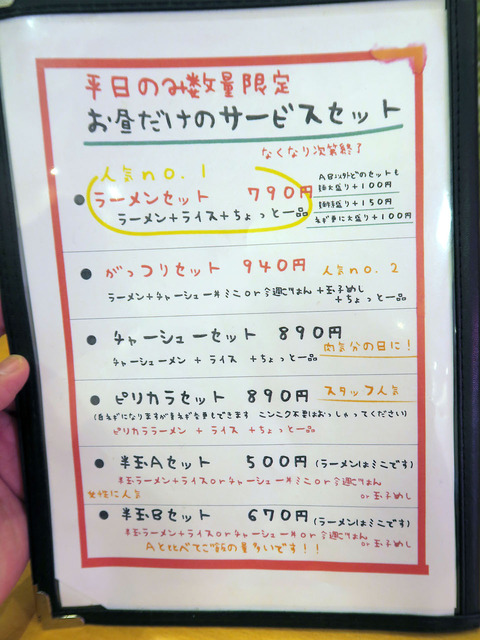 平日のみ数量限定
お昼だけのサービスセット
なくなり次第終了
人気no.1
ラーメンセット 790円
ラーメン+ライス+ちょっと一品
AB以外どのセットも
麺大盛り+100円
+150円
ねぎ更に大盛り+100円
がっつりセット 940円 人気no.2
ラーメン+チャーシュー丼ミニor今週ごはん+玉子めし
+ちょっと一品
チャーシューセット 890円
肉気分の日に!
チャーシューメン + ライス +ちょっと一品
ピリカラセット 890円 スタッフ人気
(白ねぎになりますが青ねぎ変更もできます ニンニク不要はおっしゃってください)
ピリカララーメン + ライス +ちょっと一品
半玉Aセット 500円 (ラーメンはミニです)
半玉ラーメン+ライスorチャーシュー丼ミニor今週ごはん
女性に人気 or玉子めし
半玉Bセット 670円 (ラーメンはミニです)
半玉ラーメン+ライスorチャーシュー丼or今週ごはん
or玉子めし
Aと比べてご飯の量多いです!!